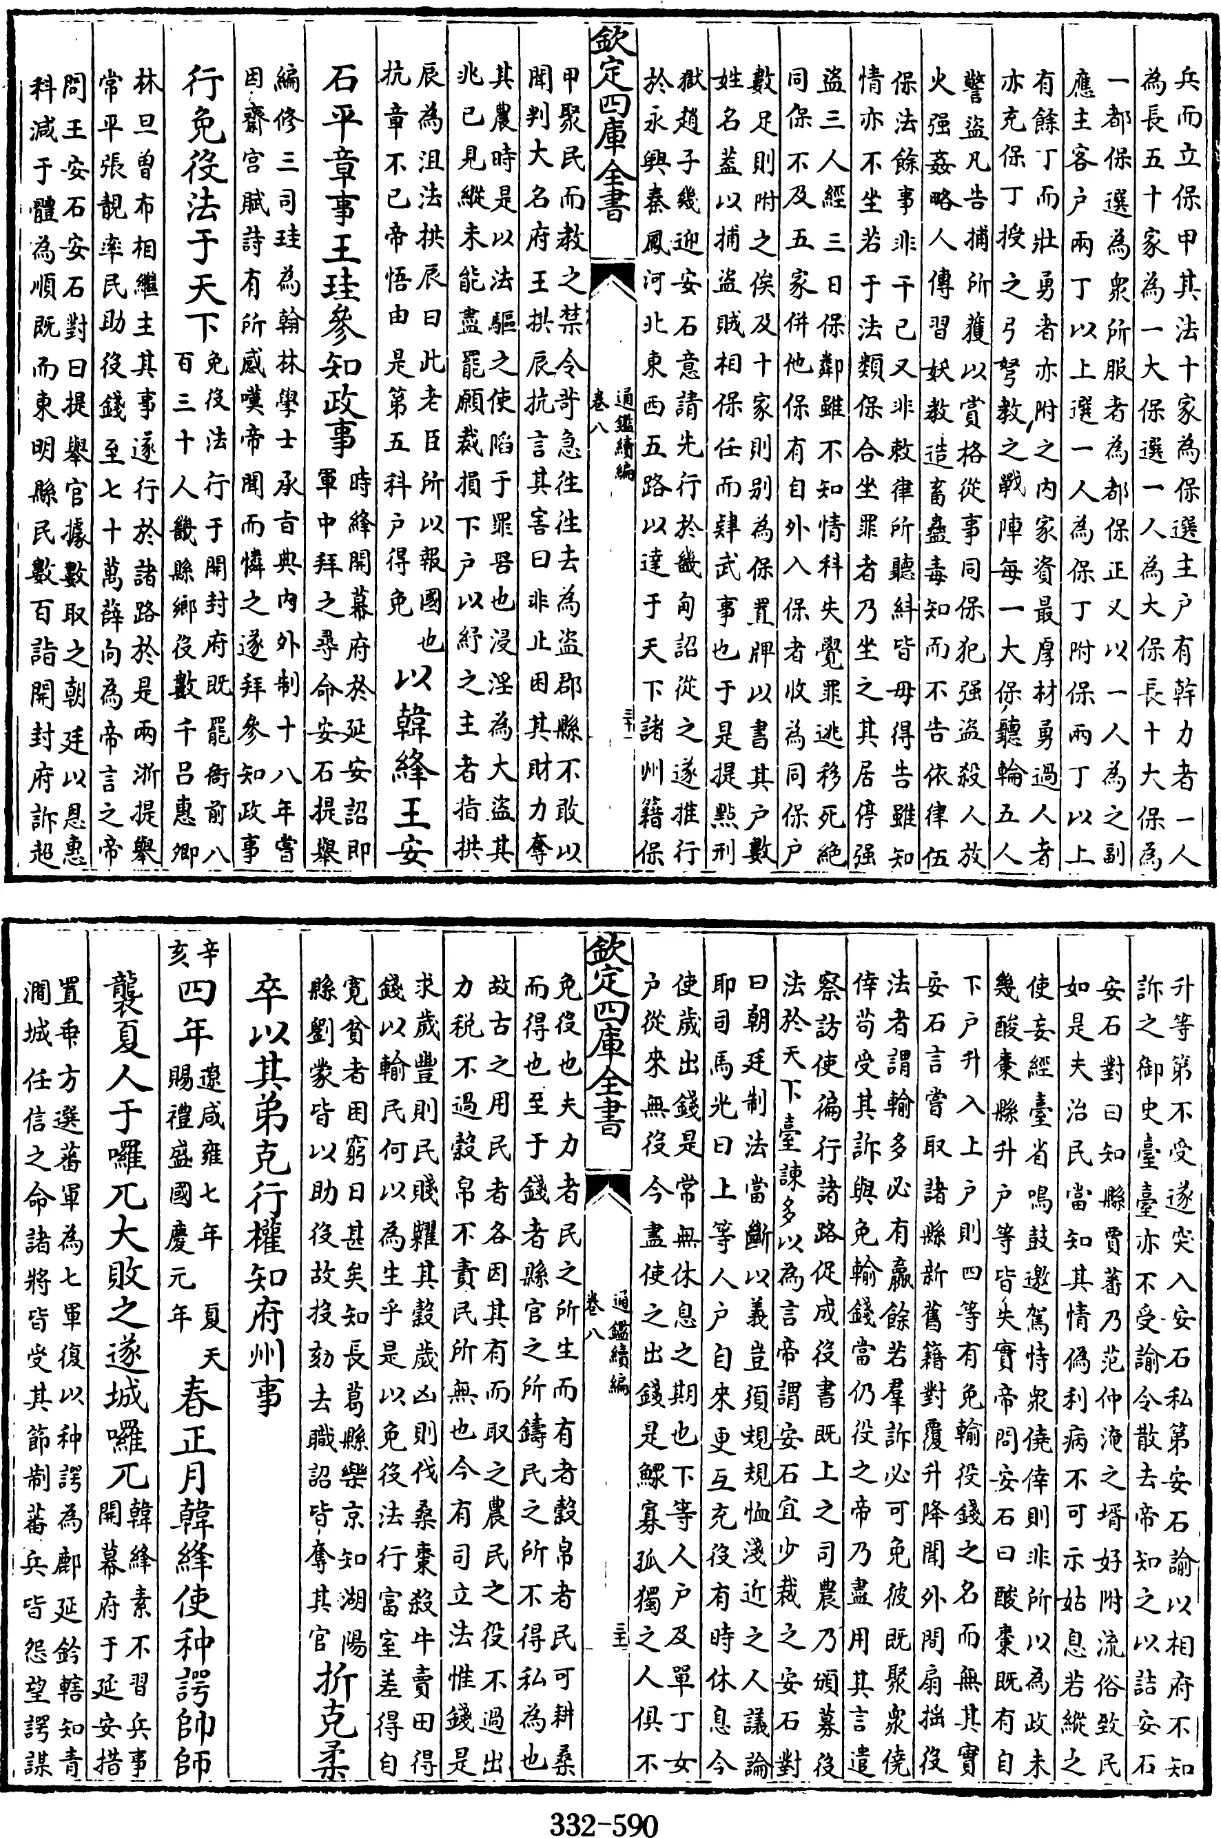 兵而立保甲其法十家為保選主戶有幹力者一人
為長五十家為一大保選一人為大保長十大保為
一都保選為衆所服者為都保正又以一人為之副
應主客戶兩丁以上選一人為保丁附保兩丁以上
有餘丁而壯勇者亦附之内家資最厚材勇過人者
亦充保丁授之弓弩教之戰陣每一大保聽輪五人
警盜凡告捕所獲以賞格從事同保犯强盜殺人放
火强姦略人傳習妖教造畜蠱毒知而不告依律伍
保法餘事非干己又非敕律所聽糾皆毋得告雖知
情亦不坐若于法類保合坐罪者乃坐之其居停强
盜三人經三日保鄰雖不知情科失覺罪逃移死絶
同保不及五家併他保有自外入保者收為同保戶
數足則附之俟及十家則别為保置牌以書其戶數
姓名葢以捕盜賊相保任而肆武事也于是提點刑
獄趙子幾迎安石意請先行於畿甸詔從之遂推行
於永興秦鳳河北東西五路以達于天下諸州籍保
欽定四庫全書
通鑑續編
卷八
三十一
甲聚民而教之禁令苛急往往去為盜郡縣不敢以
聞判大名府王拱辰抗言其害曰非止困其財力奪
其農時是以法驅之使陷于罪罟也浸淫為大盜其
兆已見縱未能盡罷願裁損下戶以紓之主者指拱
辰為沮法拱辰曰此老臣所以報國也
抗章不已帝悟由是第五科戶得免
以韓絳王安
石平章事王珪參知政事
時絳開幕府於延安詔即
軍中拜之尋命安石提舉
編修三司珪為翰林學士承旨典内外制十八年嘗
因齋宮賦詩有所感嘆帝聞而憐之遂拜參知政事
行免役法于天下
免役法行于開封府既罷衙前八
百三十人畿縣鄉役數千呂惠卿
林旦曾布相繼主其事遂行於諸路於是兩浙提舉
常平張靚率民助役錢至七十萬薛向為帝言之帝
問王安石安石對曰提舉官據數取之朝廷以恩惠
科減于體為順既而東明縣民數百詣開封府訴超
升等第不受遂突入安石私第安石諭以相府不知
訴之御史臺臺亦不受諭令散去帝知之以詰安石
安石對曰知縣賈蕃乃范仲淹之壻好附流俗致民
如是夫治民當知其情僞利病不可示姑息若縱之
使妄經臺省鳴鼓邀駕恃衆僥倖則非所以為政未
幾酸棗縣升戶等皆失實帝問安石曰酸棗既有自
下戶升入上戶則四等有免輸役錢之名而無其實
安石言嘗取諸縣新舊籍對覆升降聞外間扇搖役
法者謂輸多必有贏餘若羣訴必可免彼既聚衆僥
倖苟受其訴與免輸錢當仍役之帝乃盡用其言遣
察訪使徧行諸路促成役書既上之司農乃頒募役
法於天下臺諫多以為言帝謂安石宜少裁之安石對
曰朝廷制法當斷以義豈須規規恤淺近之人議論
耶司馬光曰上等人戶自來更互充役有時休息今
使歲出錢是常無休息之期也下等人戶及單丁女
戶從來無役今盡使之出錢是鰥寡孤獨之人俱不
欽定四庫全書
通鑑續編
卷八
三十二
免役也夫力者民之所生而有者穀帛者民可耕桑
而得也至于錢者縣官之所鑄民之所不得私為也
故古之用民者各因其有而取之農民之役不過出
力稅不過穀帛不責民所無也今有司立法惟錢是
求歲豐則民賤糶其穀歲凶則伐桑棗殺牛賣田得
錢以輸民何以為生乎是以免役法行富室差得自
寛貧者困窮日甚矣知長葛縣樂京知湖陽
縣劉蒙皆以助役故投劾去職詔皆奪其官
折克柔
卒以其弟克行權知府州事
辛
亥
四年
遼咸雍七年
賜禮盛國慶元年
夏天
春正月韓絳使种諤帥師
襲夏人于囉兀大敗之遂城囉兀
韓絳素不習兵事
開幕府于延安措
置乖方選蕃軍為七軍復以种諤為鄜延鈐轄知青
澗城任信之命諸將皆受其節制蕃兵皆怨望諤謀
332-590